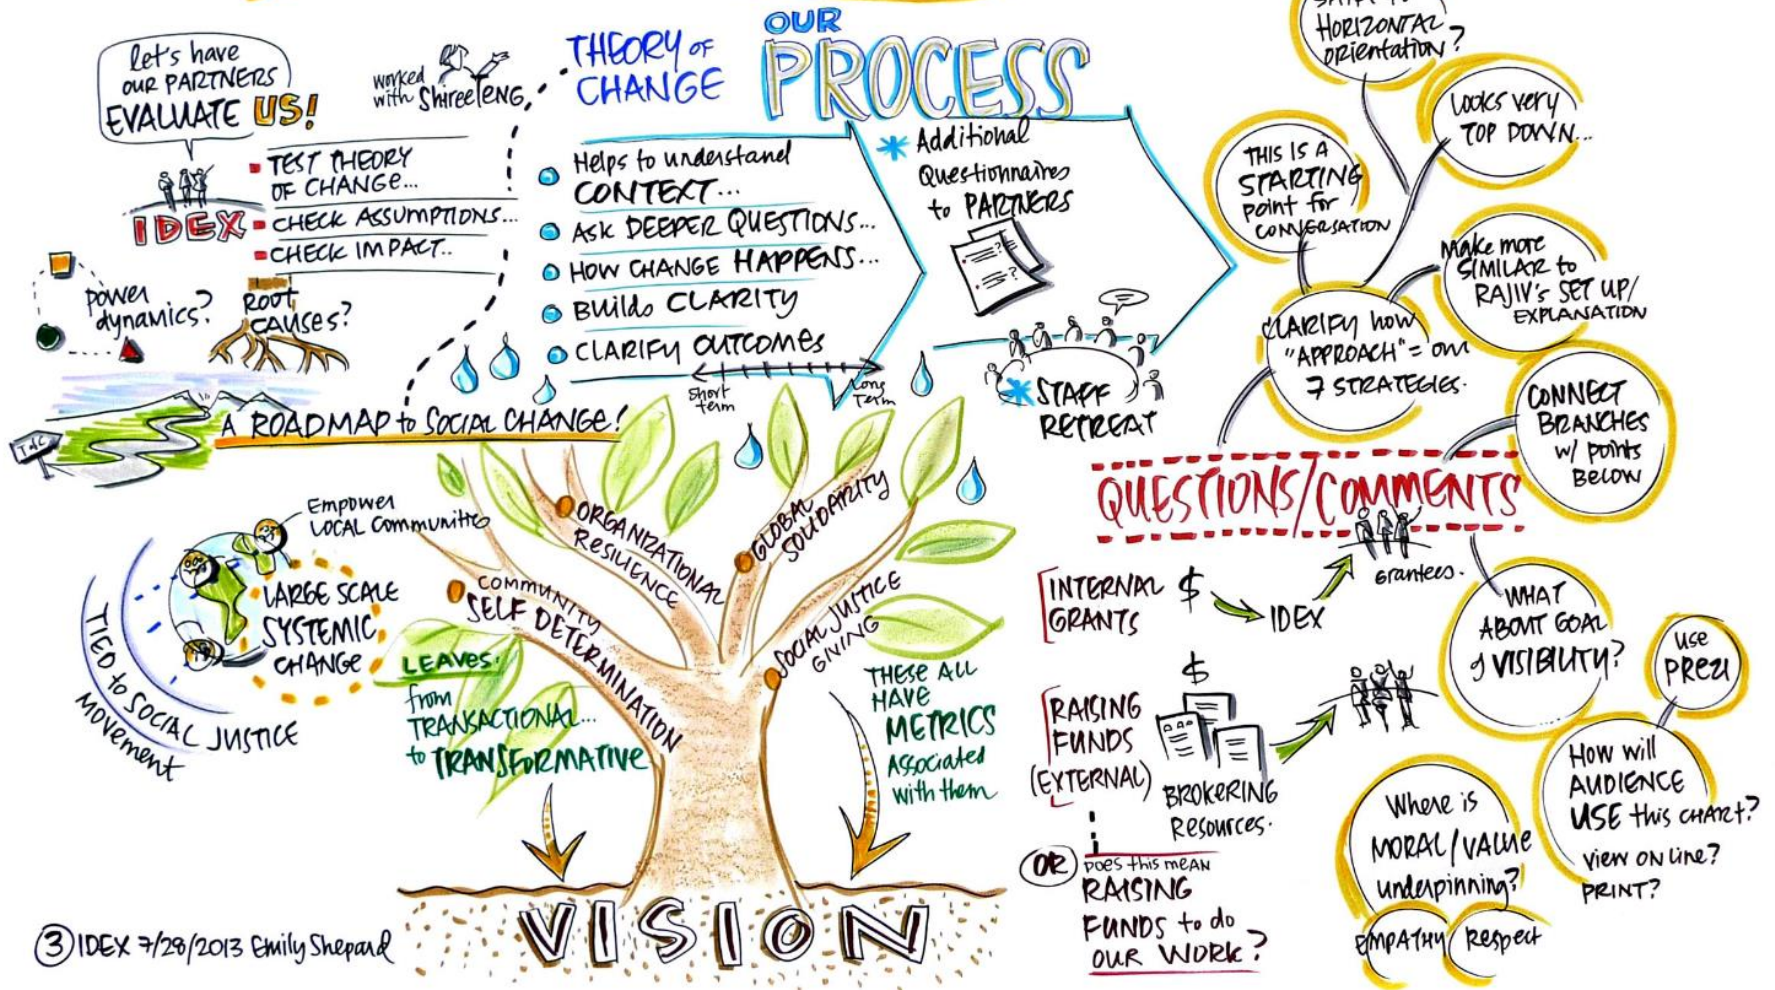 let's have
our PARTNERS
EVALUATE US!
worked
with Shiree TENG
IDEX
TEST THEORY
OF CHANGE...
CHECK ASSUMPTIONS...
CHECK IMPACT..
power
dynamics?
ROOT
CAUSES?
ToC
A ROADMAP to SOCIAL CHANGE!
THEORY OF
CHANGE
OUR
PROCESS
Helps to understand
CONTEXT...
ASK DEEPER QUESTIONS...
HOW CHANGE HAPPENS...
Builds CLARITY
CLARIFY OUTCOMES
short
term
Long
Term
Additional
Questionnaires
to PARTNERS
STAFF
RETREAT
Empower
LOCAL Communities
LARGE SCALE
SYSTEMIC
CHANGE
TIED to SOCIAL JUSTICE
MOVEMENT
COMMUNITY
SELF DETERMINATION
ORGANIZATIONAL
RESILIENCE
GLOBAL
SOLIDARITY
SOCIAL JUSTICE
GIVING
LEAVES:
from
TRANSACTIONAL...
to TRANSFORMATIVE
THESE ALL
HAVE
METRICS
Associated
with them
VISION
3 IDEX 7/28/2013 Emily Shepard
HORIZONTAL
orientation?
Looks very
TOP DOWN...
THIS IS A
STARTING
point for
CONVERSATION
Make more
SIMILAR to
RAJIV's SET UP/
EXPLANATION
CLARIFY how
"APPROACH" = our
7 STRATEGIES.
CONNECT
BRANCHES
w/ points
BELOW
QUESTIONS/COMMENTS
INTERNAL
GRANTS
$
IDEX
Grantees.
RAISING
FUNDS
(EXTERNAL)
$
BROKERING
Resources.
OR
Does this mean
RAISING
FUNDS to do
OUR WORK?
WHAT
ABOUT GOAL
of VISIBILITY?
use
PREZI
How will
AUDIENCE
USE this CHART?
view on line?
PRINT?
Where is
MORAL/VALUE
underpinning?
EMPATHY
Respect